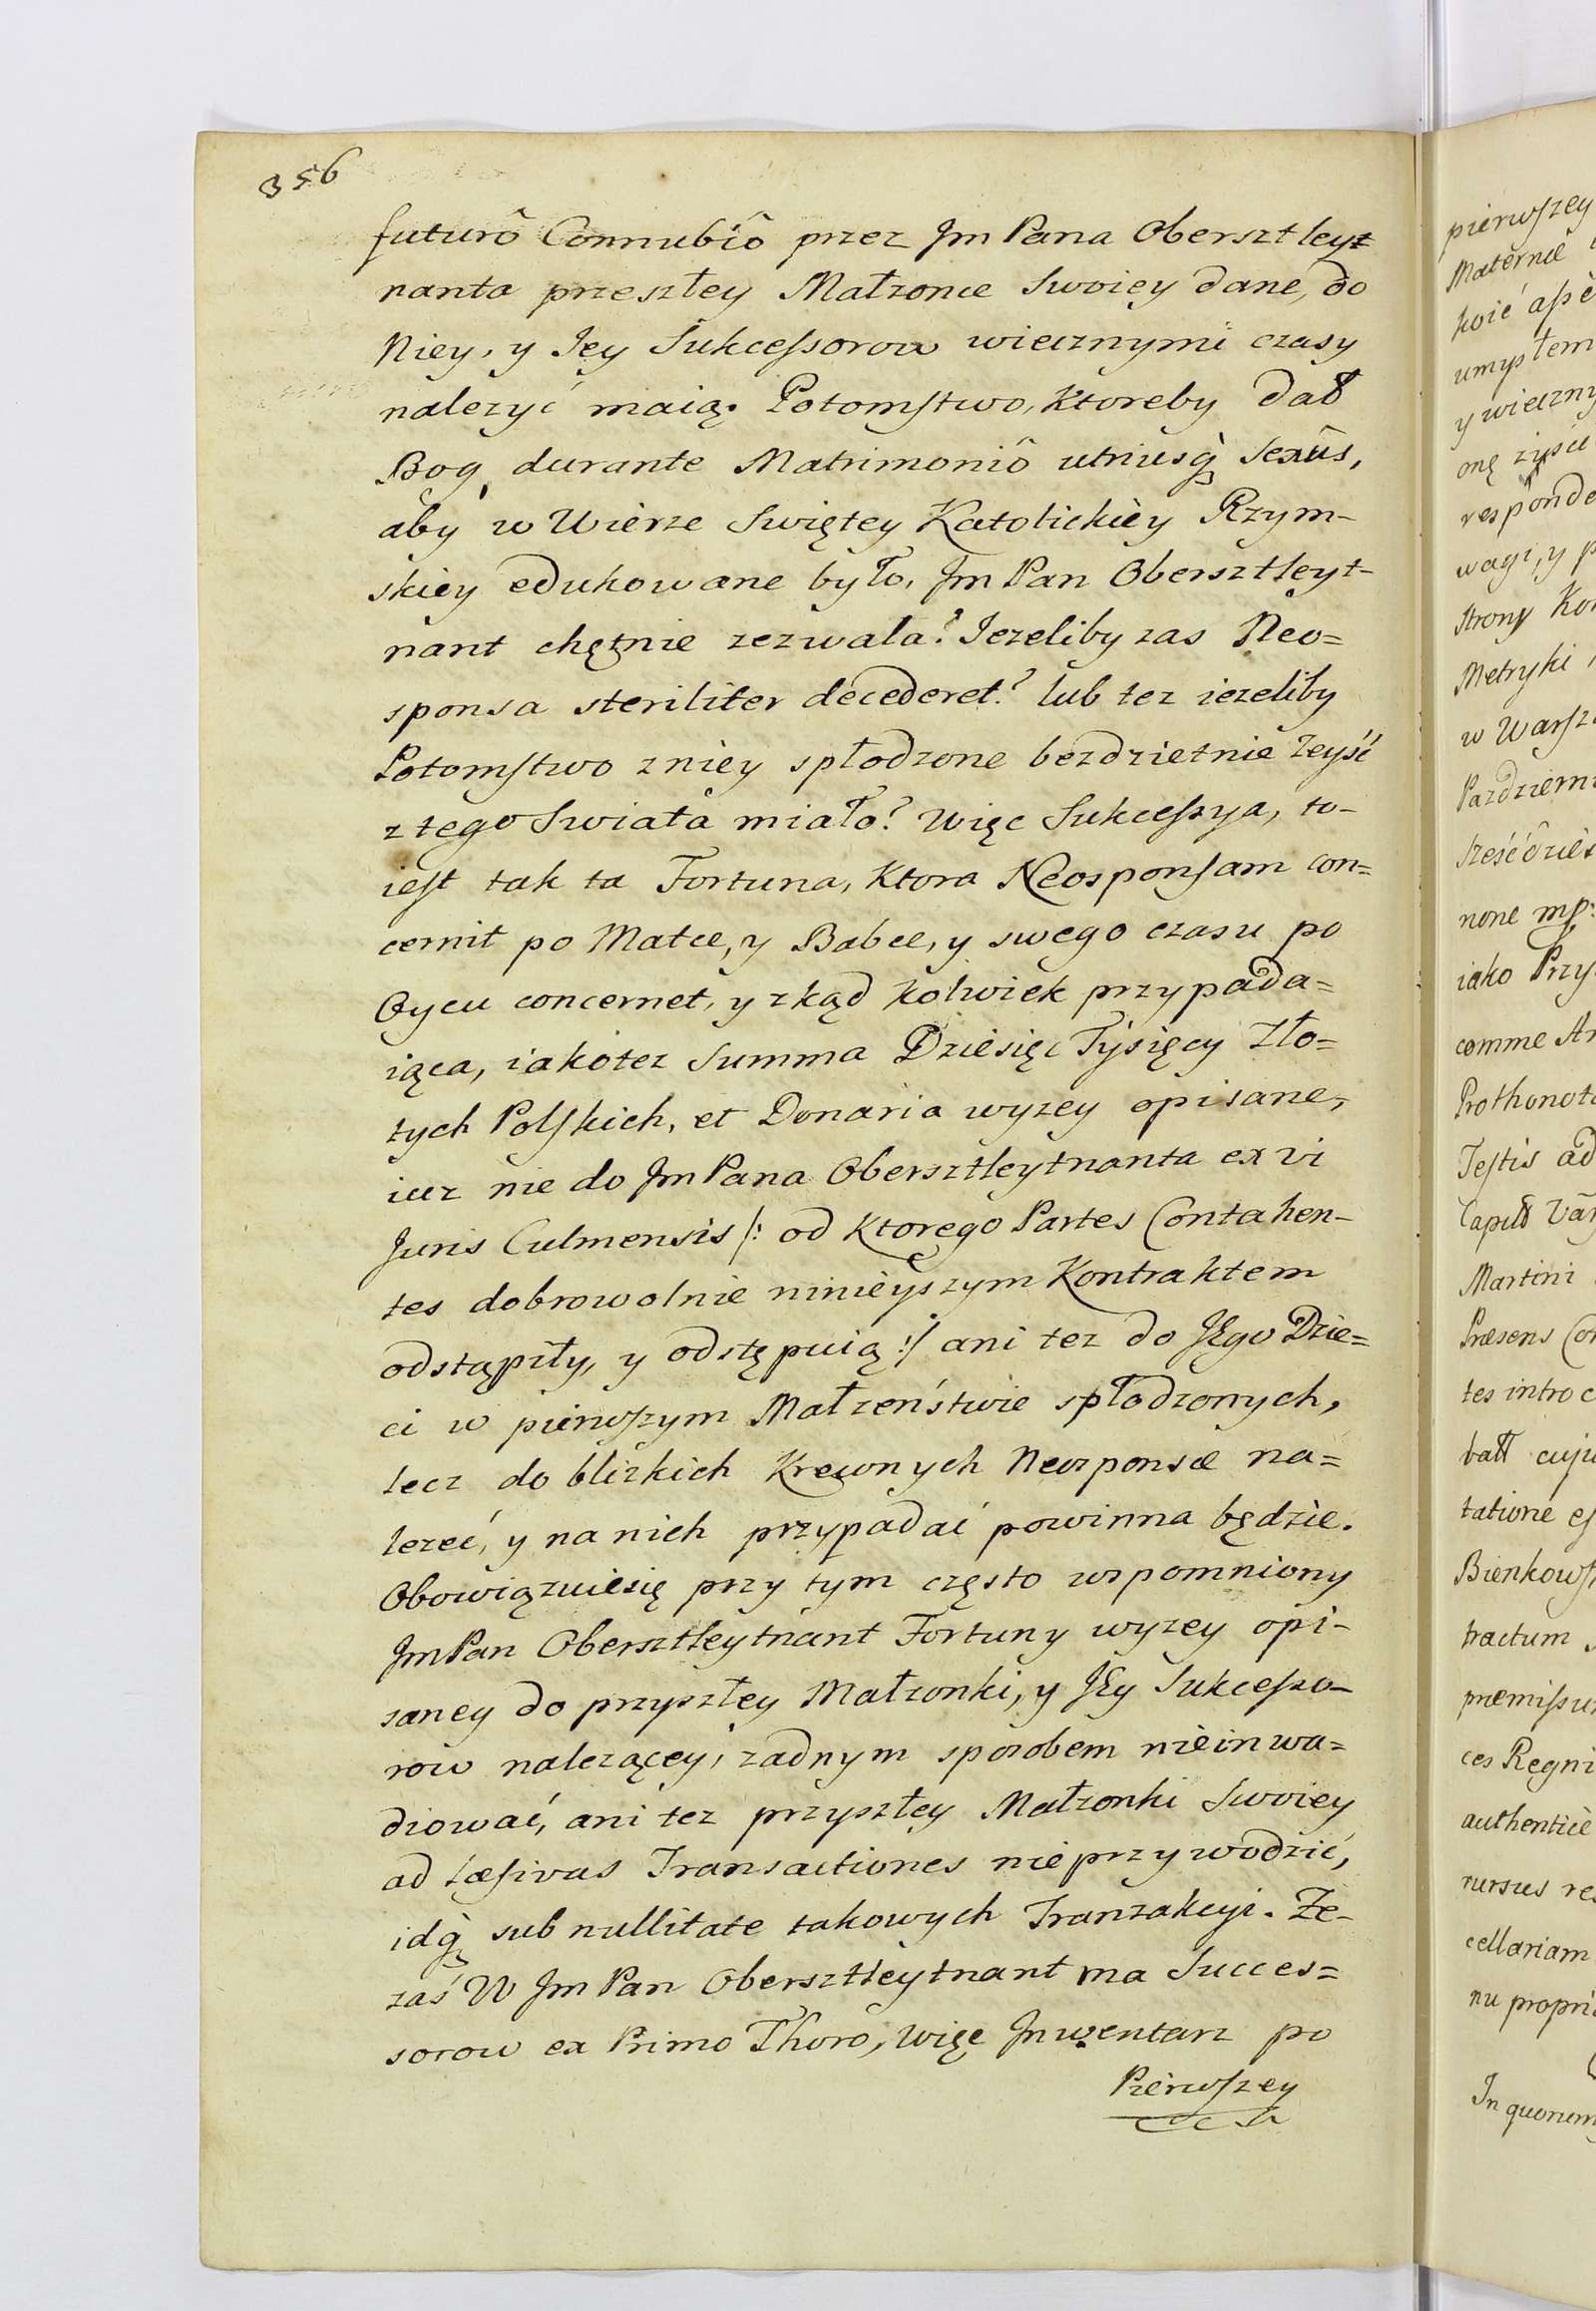 356
futurô Connubiô przez Jm Pana Obersztleyt
nanta przeszłey Małzonce Swoiey dane, do
Niey, y Jey Sukcessorow wiecznymi czasy
nalezyć maią. Potomstwo, ktoreby dał
Bog durante Matrimoniô utriusq̀ Sexûs,
aby w Wierze Swiętey Katolickiey Rzym-
skiey edukowane było, Jm Pan Obersztleyt-
nant chętnie zezwala? Jezeliby zas Neo=
sponsa steriliter decederet? lub tez iezeliby
Potomstwo zniey spłodzone bezdzietnie Zeyść
z tego Swiata miało? Więc Sukcessya, to-
iest tak ta Fortuna, ktora Neosponsam con=
cernit po Matce, y Babce, y swego czasu po
Oycu concernet, y zkąd kolwiek przypada=
iąca, iakotez Summa Dziesięc Tysięcy Zło=
tych Polskich, et Donaria wyzey opisane,
iuz nie do Jm Pana Obersztleytnanta ex vi
Juris Culmensis /: od ktorego Partes Contahen-
tes dobrowolnie ninieyszym Kontraktem
odstąpiły, y odstępuią :/ ani tez do JEgo Dzie=
ci w pierwszym Małzeństwie spłodzonych,
lecz do blizkich Krewnych Neosponsæ na=
lezeć, y na nich przypadać powinna będzie.
Obowiązuiesię przy tym często wspomniony
Jm Pan Obersztleytnant Fortuny wyzey opi-
saney do przyszłey Małzonki, y JEy Sukcesso-
row nalezącey, zadnym sposobem nieinwa=
diować, ani tez przyszłey Małzonki Swoiey
ad læsivas Transactiones nieprzywodzić,
idq̀ sub nullitate takowych Tranzakcyi. Ze-
zaś W Jm Pan Obersztleytnant ma Succes=
sorow ex Primo Thoro, więc Jnwentarz po
Pierwszey
pierwszey
Maternæ
umysłem
y wieczny
onę
responde
wagi, y p
strony Kon
Metryki
w Warsz
Pazdzierni
none mp:
iako Przy
comme Ar
Prothonota
Testis ad
Martini
Præsens Con
tes intro c
batt cuju
tatione es
Bienkows
tractum
præmissu
ces Regni
authentice
rursus res
cellariam
nu propri
In quorum